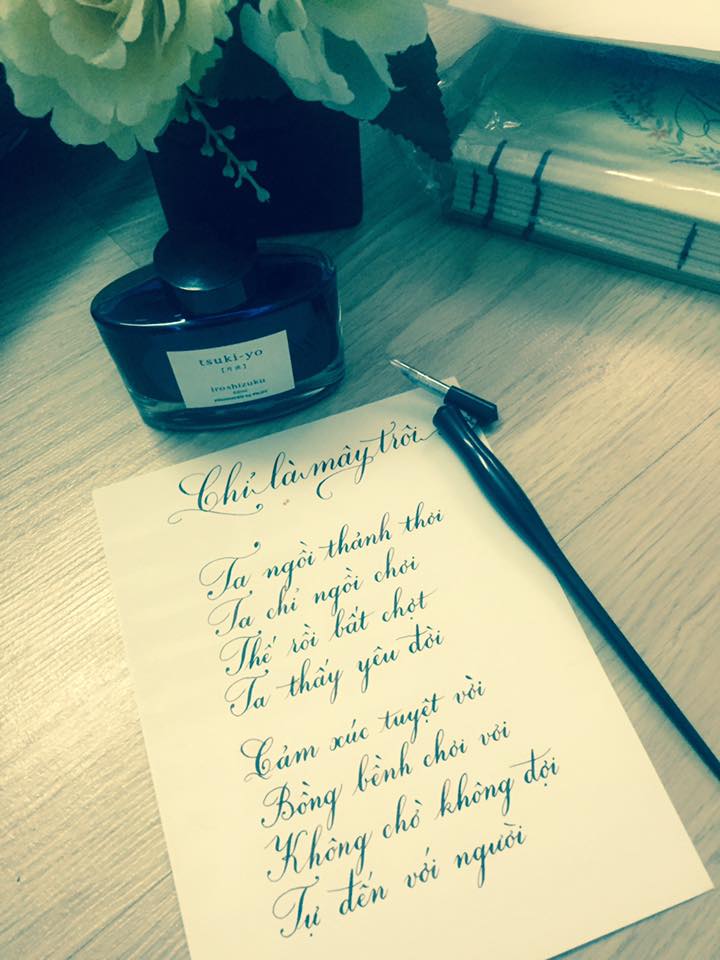 tsuki-yo
[月夜]
iroshizuku
50ml
Chỉ là mây trôi
Ta ngồi thảnh thơi
Ta chỉ ngồi chơi
Thế rồi bất chợt
Ta thấy yêu đời
Cảm xúc tuyệt vời
Bồng bềnh chơi vơi
Không chờ không đợi
Tự đến với người